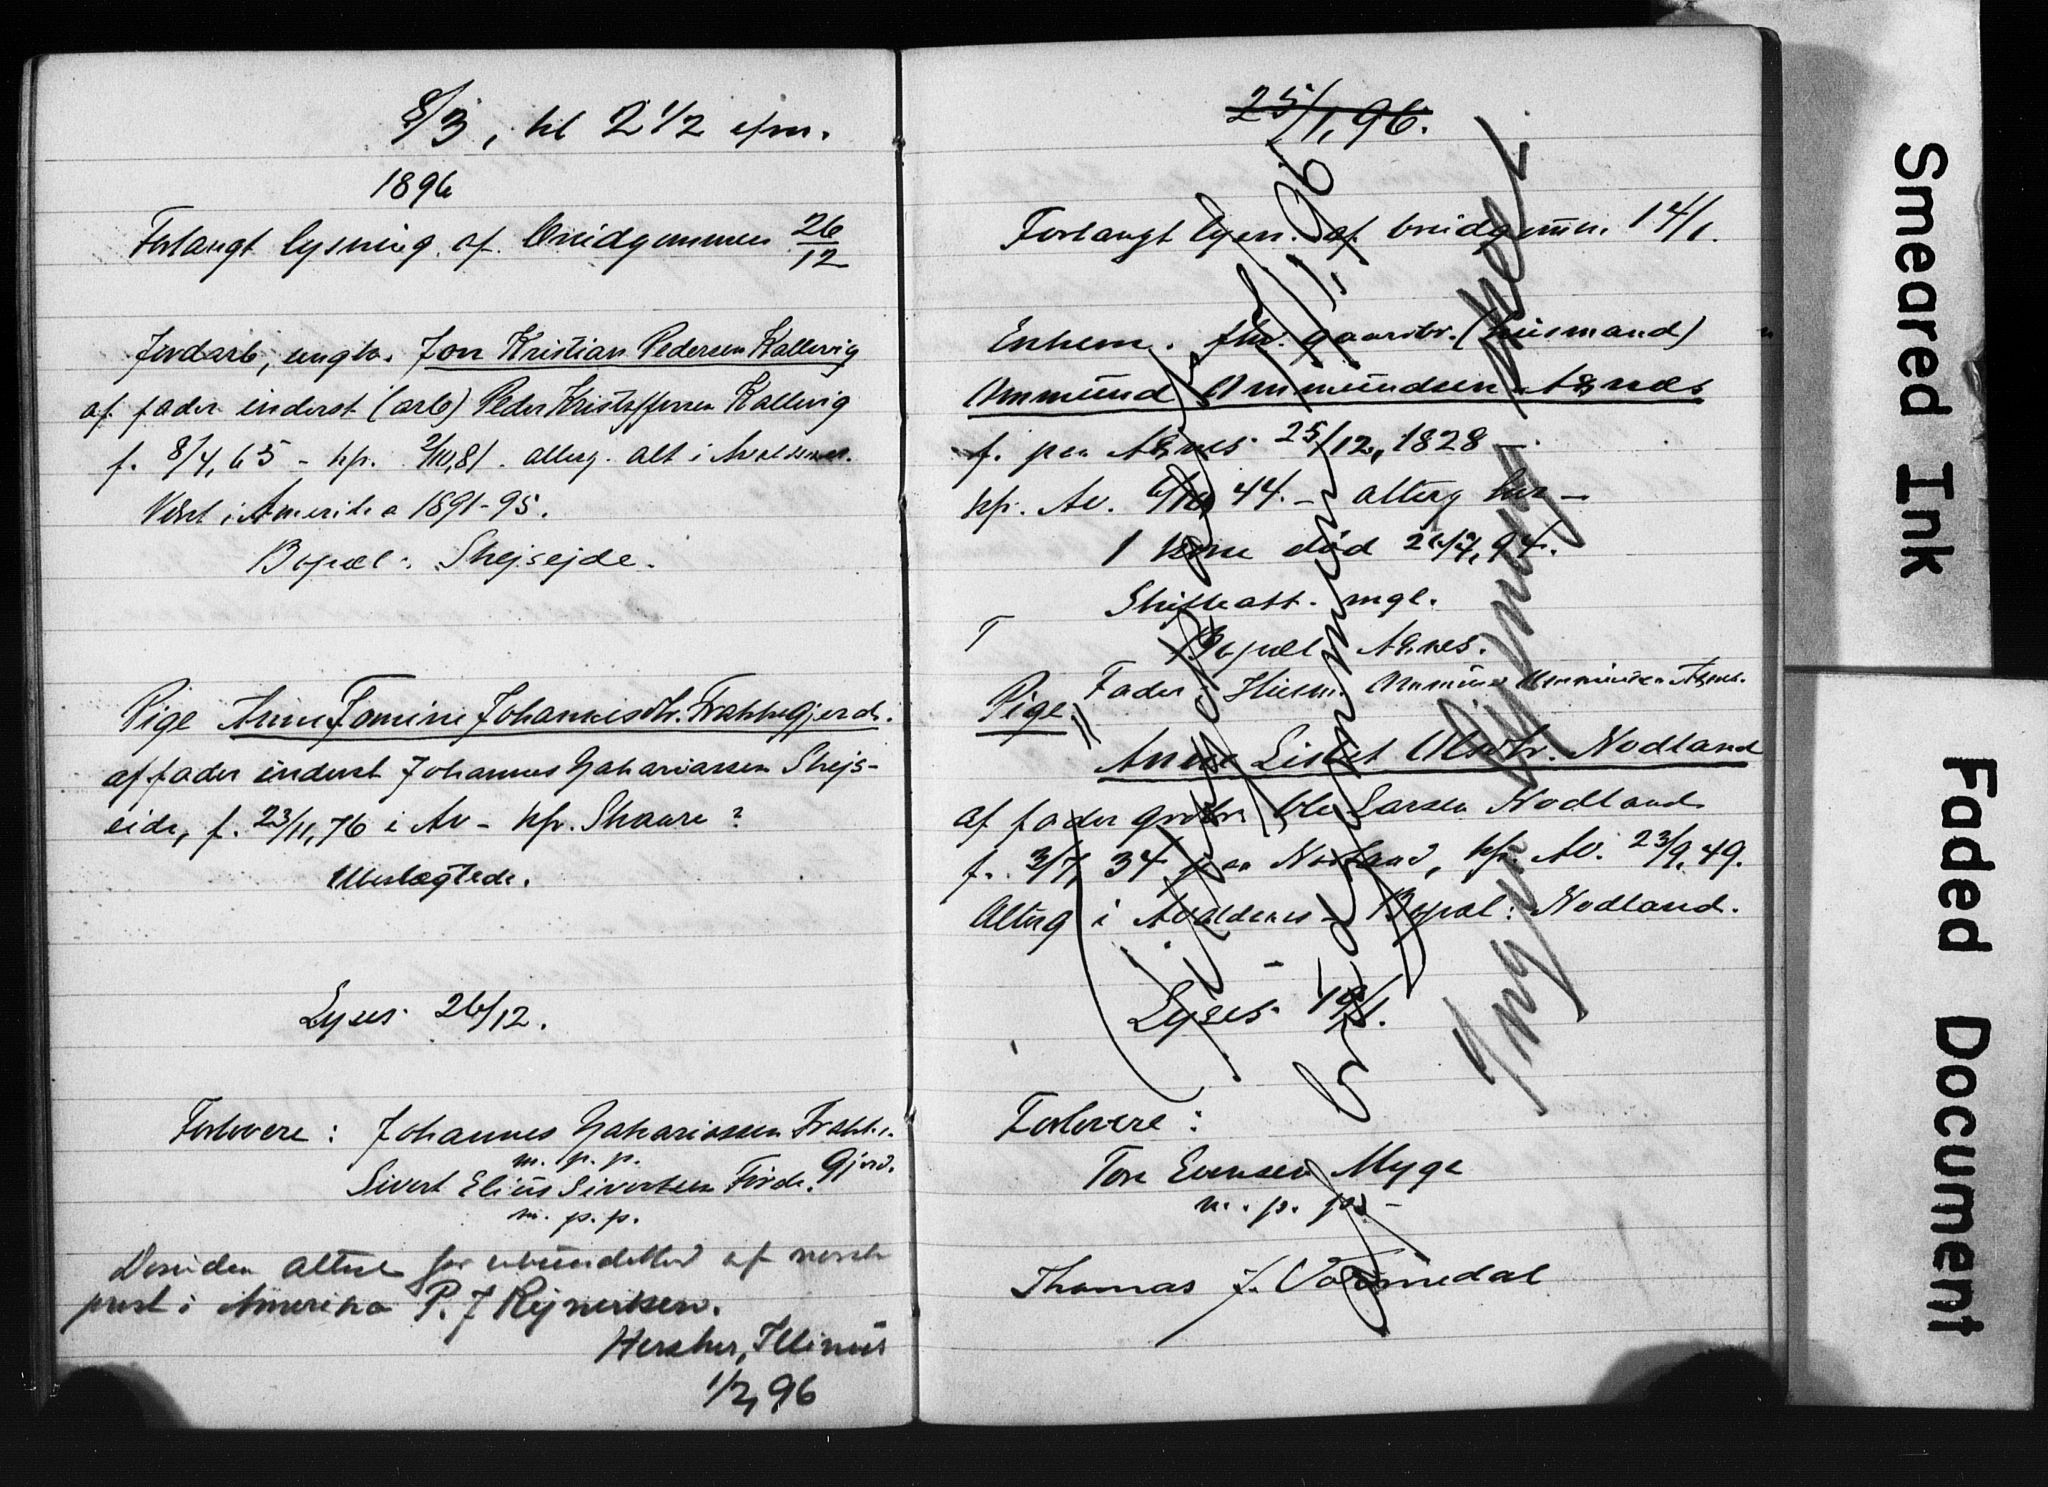 8/3, kl 2 1/2 efm.
1896
Forlangt lysning af brudgommen 26/12
Jordarb, ungk. Jon Kristian Pedersen Kallevig
af fader inderst (arb) Peder Kristoffersen Kallevig
f. 8/4, 65 - kp. 2/10, 81. alterg. alt i Avaldsnes.
Været i Amerika 1891-95.
Bopæl: Skejsejde.
Pige Anne Tomine Johannesdtr. Frakkegjerd.
af fader inderst Johannes Zakariassen Skejs-
eide, f. 23/11, 76 i Av - kfr. Skaare?
Ubeslægtede.
Lyses 26/12.
Forlovere: Johannes Zakariassen Frakke-
gjerd.
m. p. p.
Sivert Elius Sivertsen Førde.
m. p. p.
Desuden attest for ubundethed af norsk
prest i Amerika P. J Rejnertsen.
Hersher, Illinois
1/2, 96
25/1, 96.
Forlangt lysn. af brudgomm. 14/1.
Enkem. fhv. gaardbr. (husmand)
Ommund Ommundsen Agnes
f. paa Agnes 25/12, 1828 -
kp. Av. 6/10 44. - alterg her -
1 kone død 26/7, 94.
Skifteatt. mgl.
Bopæl Agnes.
Fader: Husm. Ommund Ommundsen Agnes.
Pige
Anne Lisbet Olsdtr. Nodland
af fader grdbr. Ole Larsen Nodland
f. 3/7, 34 paa Nodland, kfr. Av. 23/9, 49.
Alterg i Avaldsnes - Bopæl: Nodland.
Lyses 19/1.
Forlovere:
Tore Evensen Myge
m. p. p.
Thomas J. Vormedal
brudgommen
17/1, 96
Ingen lysning skei.
Smeared Ink
Faded Document